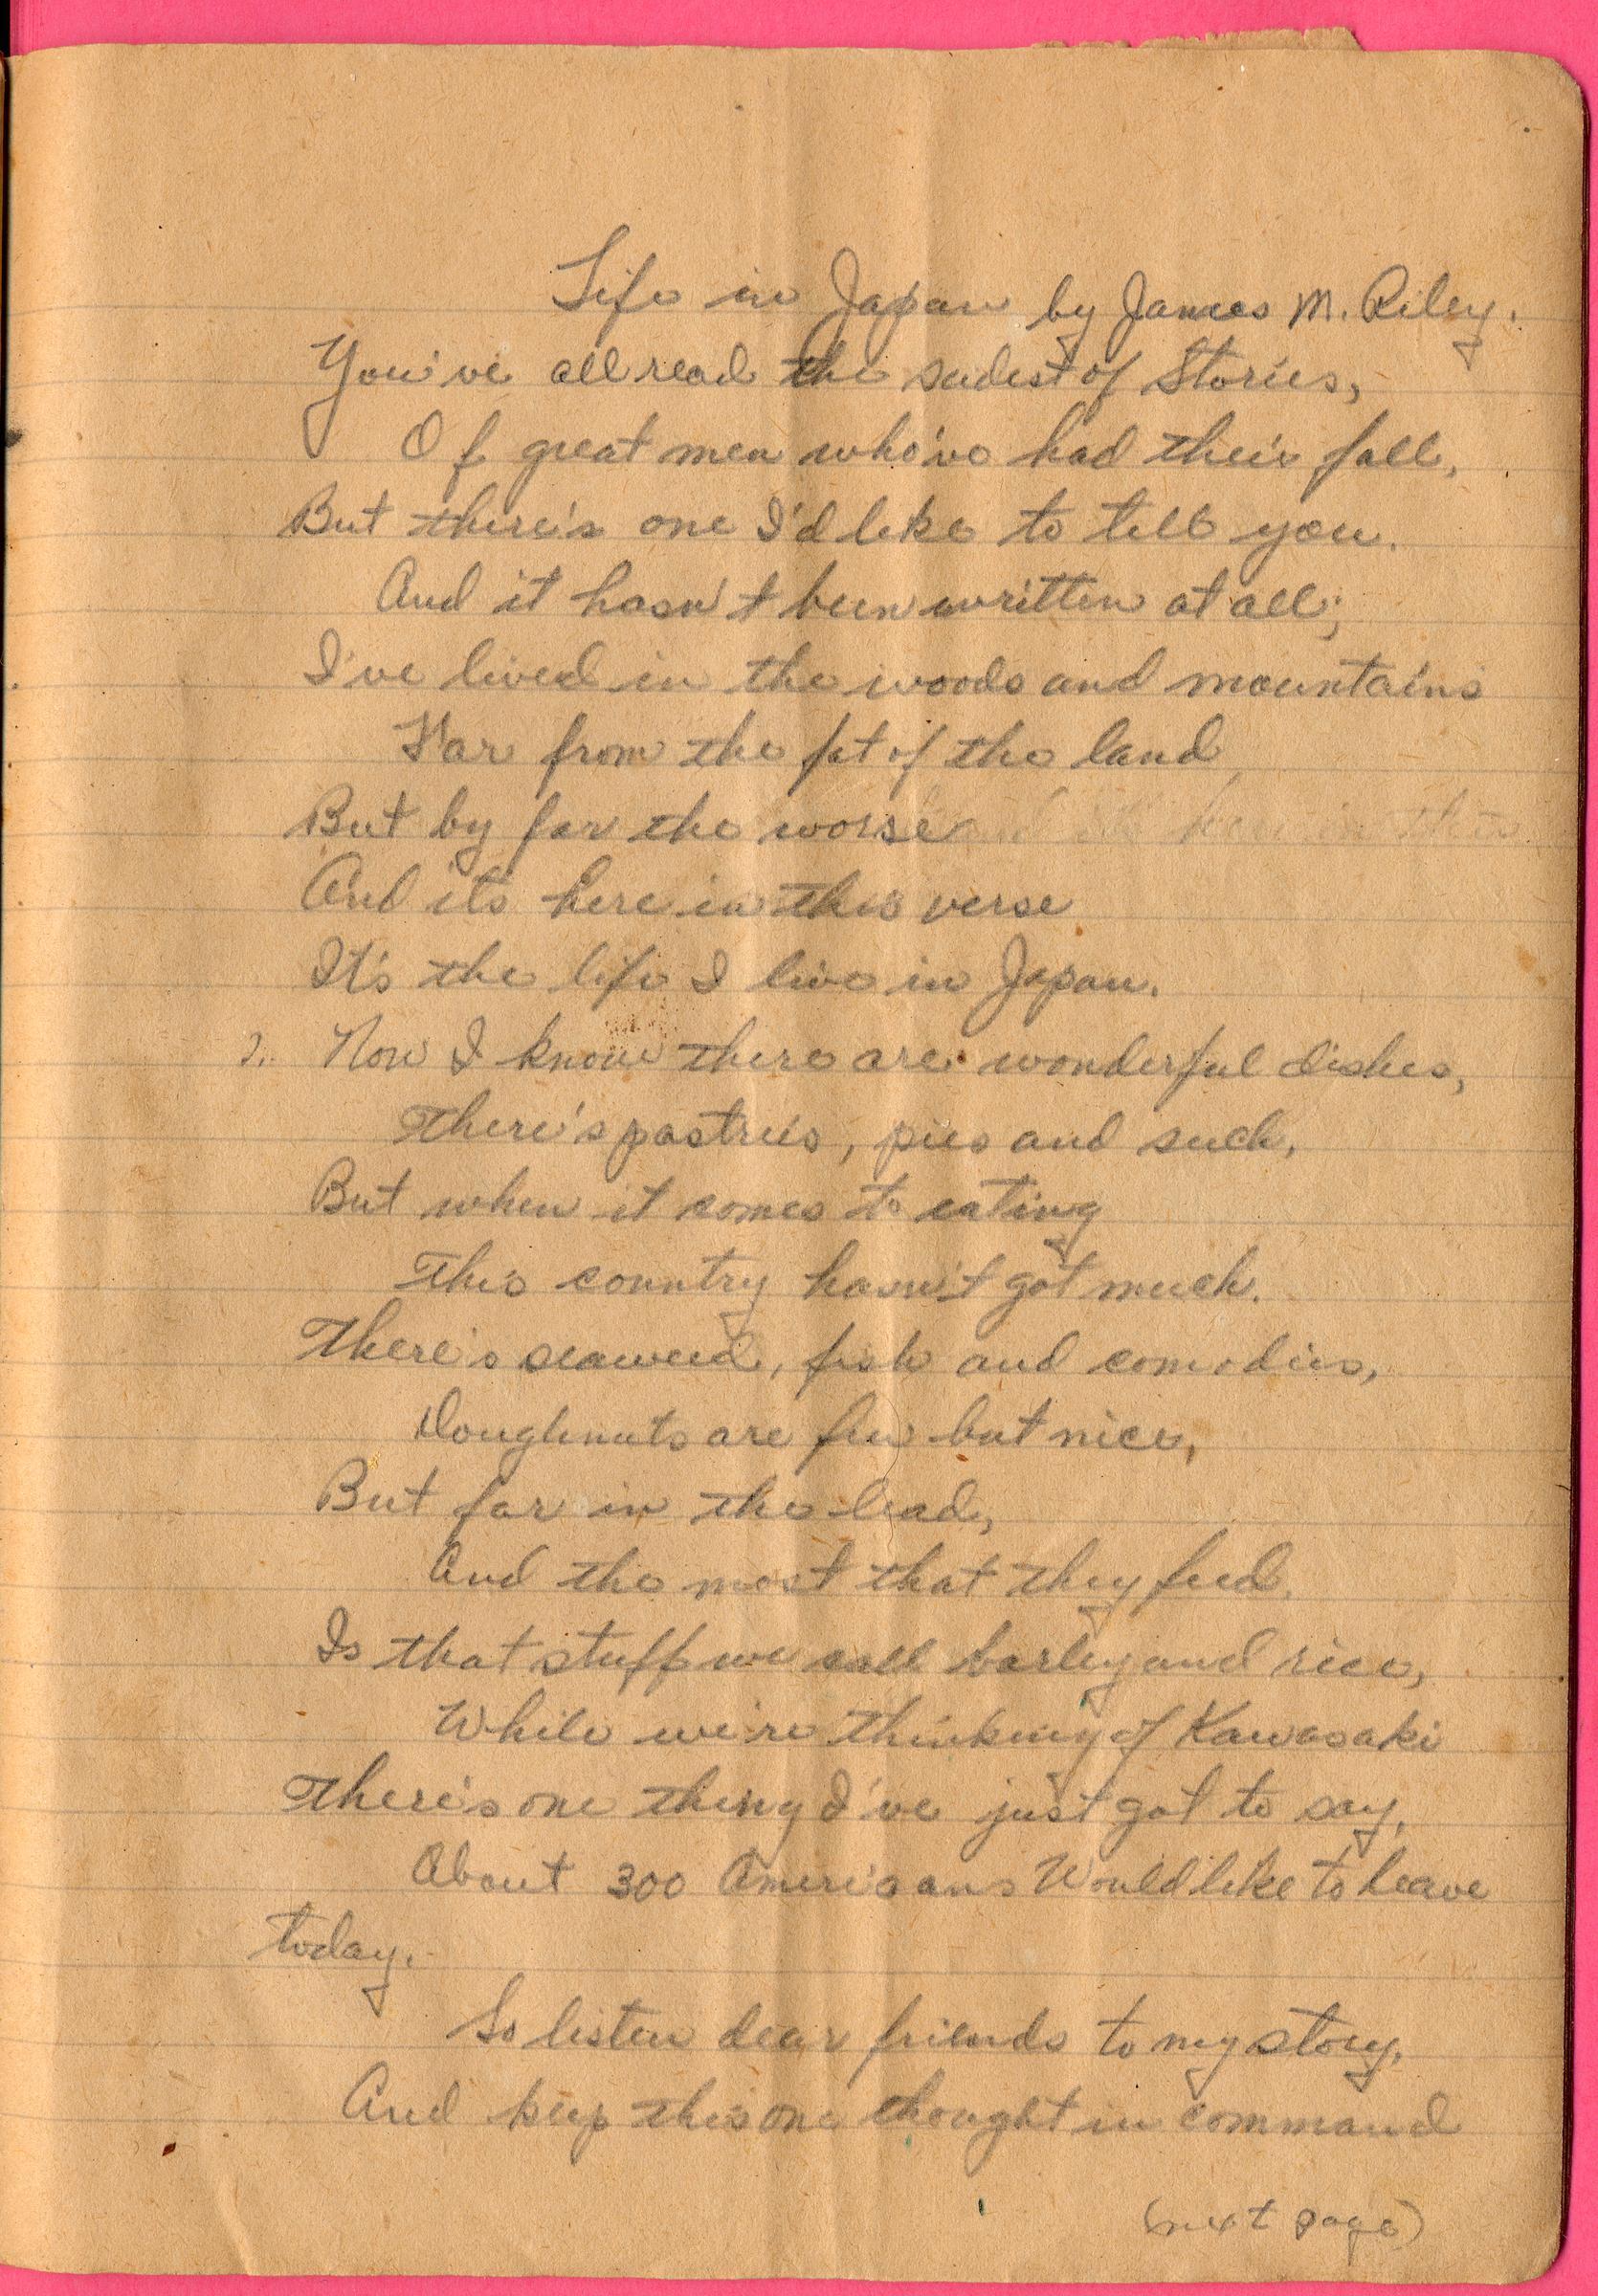 Life in Japan by James M. Riley.
You've all read the sadest of Stories,
Of great men who've had their fall,
But there's one I'd like to tell you.
And it hasn't been written at all;
I've lived in the woods and mountains
Far from the fat of the land,
But by far the worse
And its here in this verse
It's the life I live in Japan.
2. Now I know there are wonderful dishes,
There's pastries, pies and such,
But when it comes to eating
This country hasn't got much.
There's seaweed, fish and comodies,
Doughnuts are few but nice,
But far in the lead,
And the most that they feed,
Is that stuff we call barley and rice,
While we're thinking of Kawasaki
There's one thing I've just got to say,
About 300 Americans Would like to leave
today.
So listen dear friends to my story,
And keep this one thought in command
(next page)